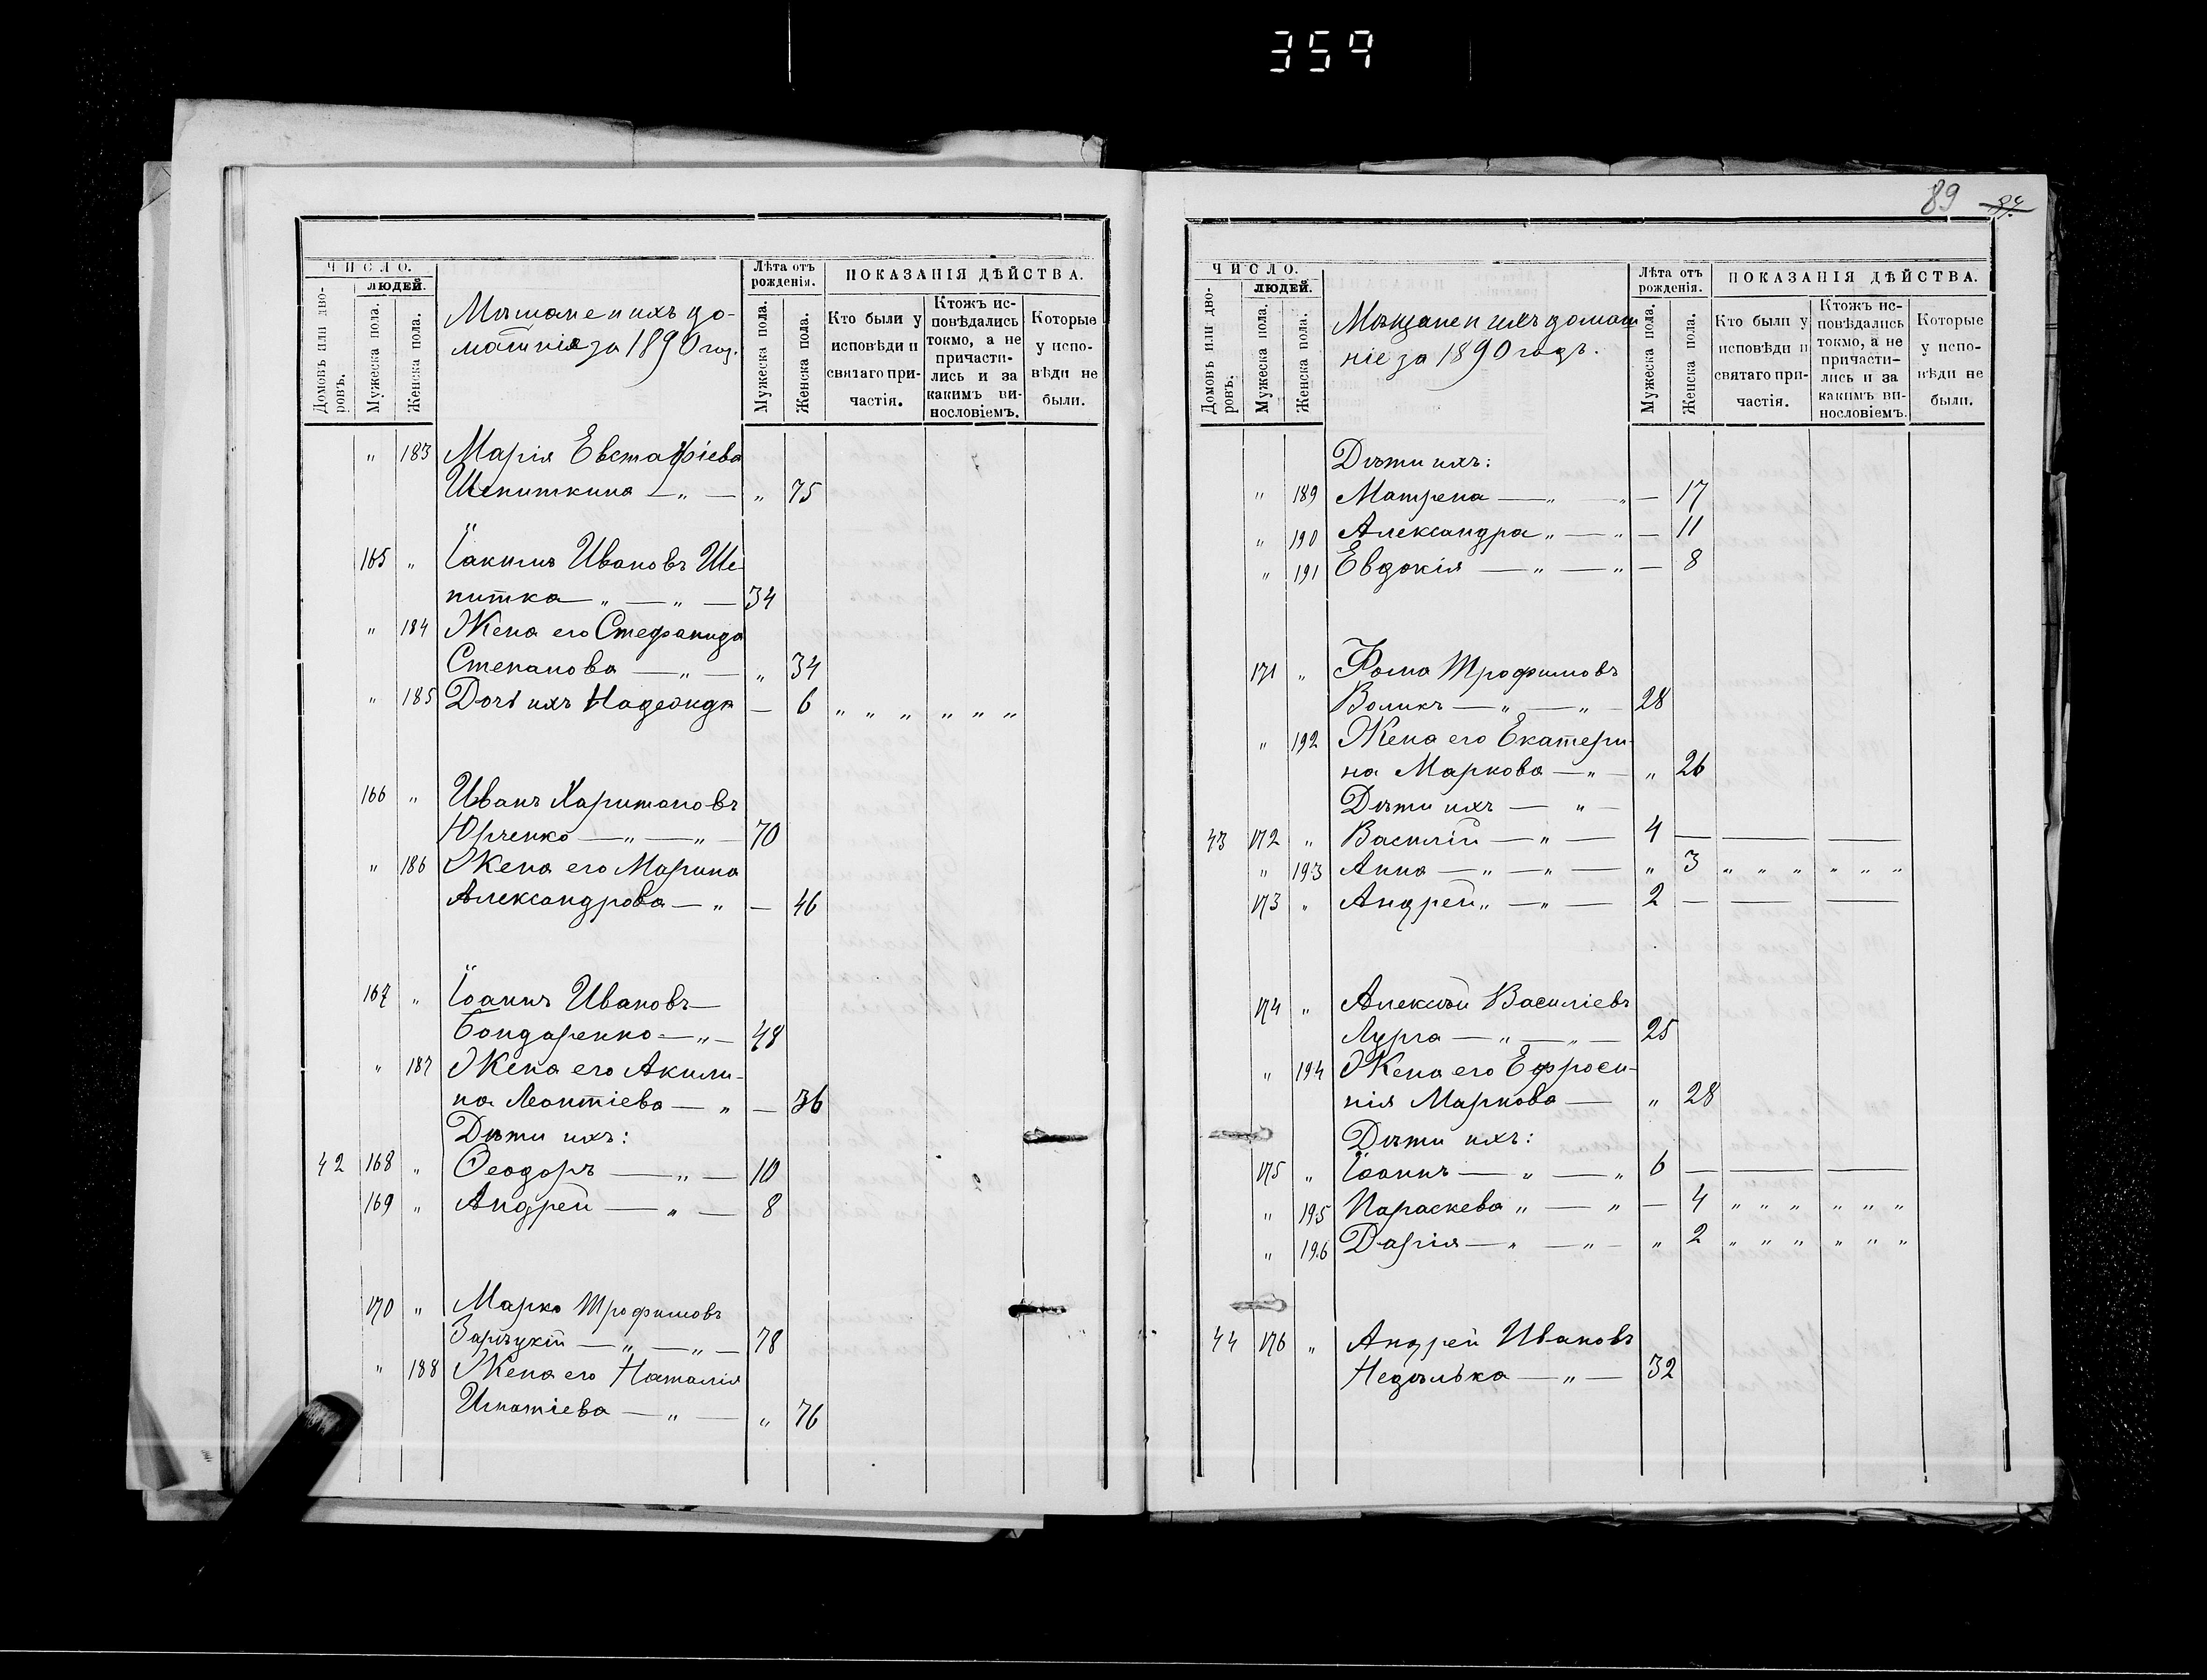 359
ЧИСЛО.
ЛЮДЕЙ.
Домовъ или дво-
ровъ.
Мужеска пола.
Женска пола.
Мѣщане и ихъ до-
машнія за 1890 год.
Лѣта отъ
рожденія.
Мужеска пола.
Женска пола.
ПОКАЗАНІЯ ДѢЙСТВА.
Кто были у
исповѣди и
святаго при-
частія.
Ктожъ ис-
повѣдались
токмо, а не
причасти-
лись и за
какимъ ви-
нословіемъ.
Которые
у испо-
вѣди не
были.
„ 183 Марія Евстафіева
Шепиткина — „ — „ 75
165 „ Іакимъ Ивановъ Ше-
питка „ — „ — 34
„ 184 Жена его Стефанида
Степанова — „ — „ 34
„ 185 Дочь ихъ Надежда — 6 „ „ „ „ „ „
166 „ Иванъ Харитоновъ
Юрченко — „ — „ — 70
„ 186 Жена его Марина
Александрова — „ — 46
167 „ Іоаннъ Ивановъ —
Бондаренко — „ — 48
„ 187 Жена его Акили-
на Леонтіева — „ — 36
Дѣти ихъ:
42 168 „ Ѳеодоръ — „ — 10
169 „ Андрей — „ — 8
170 „ Марко Трофимовъ
Зарѣцкій — „ — „ — 78
„ 188 Жена его Наталія
Игнатіева — „ — „ 76
89
ЧИСЛО.
ЛЮДЕЙ.
Домовъ или дво-
ровъ.
Мужеска пола.
Женска пола.
Мѣщане и ихъ домаш
ніе за 1890 годъ.
Лѣта отъ
рожденія.
Мужеска пола.
Женска пола.
ПОКАЗАНІЯ ДѢЙСТВА.
Кто были у
исповѣди и
святаго при-
частія.
Ктожъ ис-
повѣдались
токмо, а не
причасти-
лись и за
какимъ ви-
нословіемъ.
Которые
у испо-
вѣди не
были.
Дѣти ихъ:
„ 189 Матрена — „ — „ — 17
„ 190 Александра „ — „ — 11
„ 191 Евдокія — „ — „ — 8
171 „ Фома Трофимовъ
Воликъ — „ — „ — 28
„ 192 Жена его Екатери-
на Маркова — „ — „ 26
Дѣти ихъ — „ —
43 172 „ Василій — „ — 4 — — —
„ 193 Анна — „ — „ — „ 3 „ „ „ „ „ „
173 „ Андрей „ — „ — 2 — — —
174 „ Алексѣй Василіевъ
Лурга — „ — „ — 25
„ 194 Жена его Ефроси-
нія Маркова — „ 28
Дѣти ихъ:
175 „ Іоаннъ — „ — „ 6 — — —
„ 195 Параскева „ — „ — 4 „ „ „ „ „ „
„ 196 Дарія — „ — „ — „ 2 „ „ „ „ „ „
44 176 „ Андрей Ивановъ
Недѣлька — „ — 32